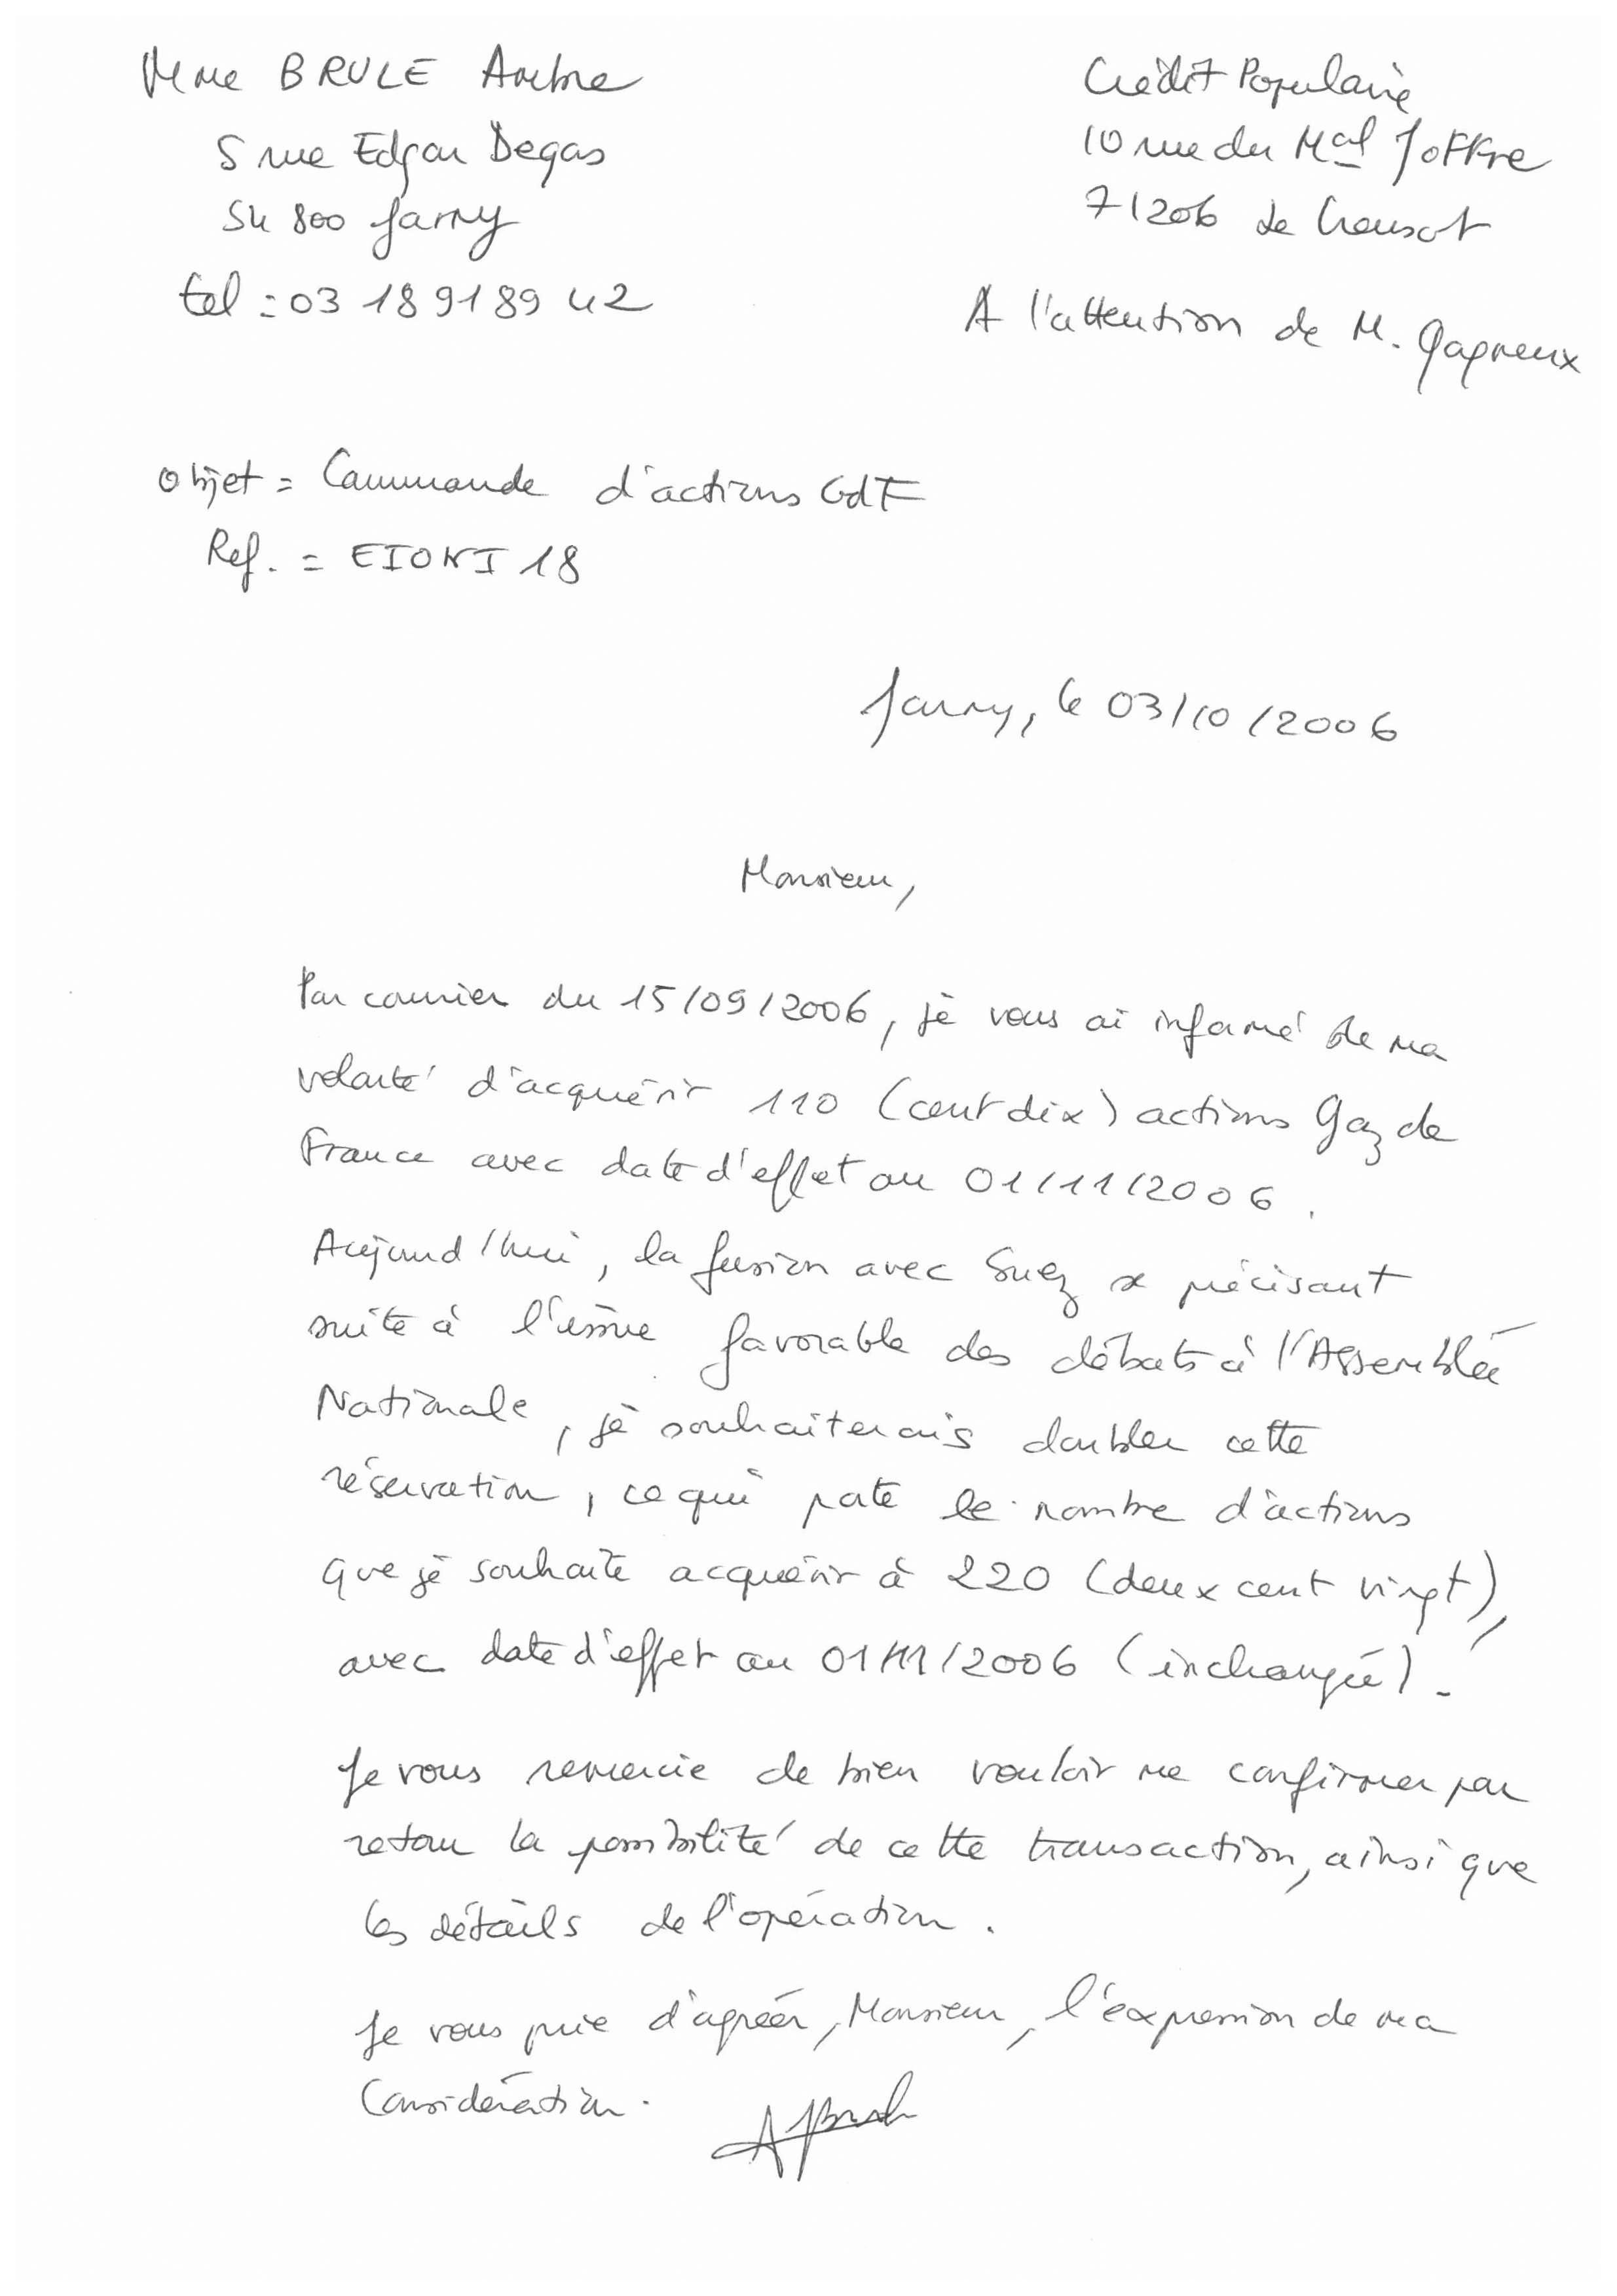 Mme BRULE Ambre
5 rue Edgar Degas
54 800 Jarny
tel : 03 18 91 89 42
Crédit Populaire
10 rue du Mal Joffre
71206 Le Creusot
A l'attention de M. Gagneux
Objet = Commande d'actions GdF
Ref. = EIONI 18
Jarny, le 03/10/2006
Monsieur,
Par courrier du 15/09/2006, je vous ai informé de ma
volonté d'acquérir 110 (cent dix) actions Gaz de
France avec date d'effet au 01/11/2006.
Aujourd'hui, la fusion avec Suez se précisant
suite à l'issue favorable des débats à l'Assemblée
Nationale, je souhaiterais doubler cette
réservation, ce qui porte le nombre d'actions
que je souhaite acquérir à 220 (deux cent vingt),
avec date d'effet au 01/11/2006 (inchangée).
Je vous remercie de bien vouloir me confirmer par
retour la possibilité de cette transaction, ainsi que
les détails de l'opération.
Je vous prie d'agréer, Monsieur, l'expression de ma
Considération.